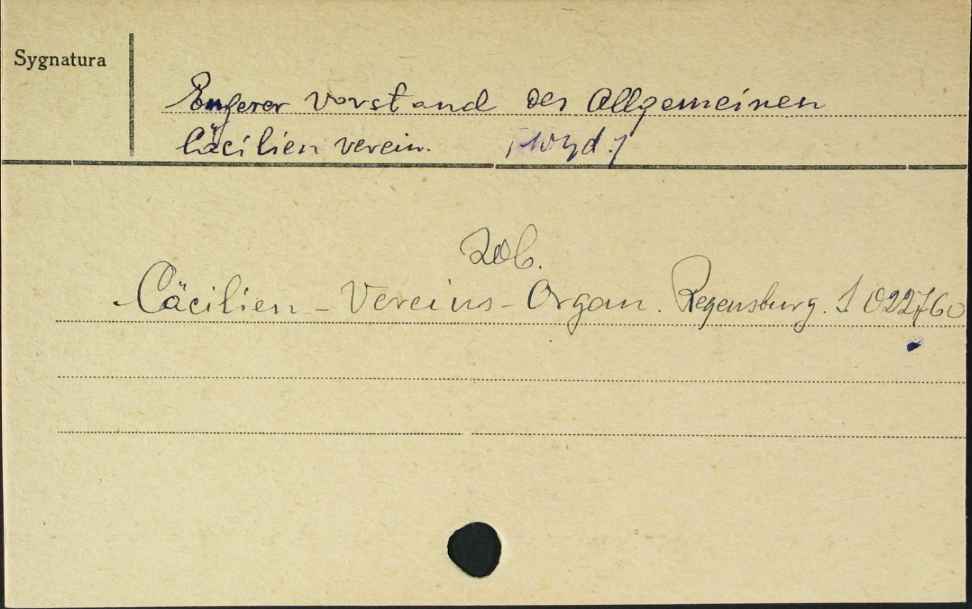 Sygnatura
Engerer Vorstand des Allgemeinen
Cäcilien verein. /Wyd./
Zob.
Cäcilien - Vereins - Organ. Regensburg. I 022760